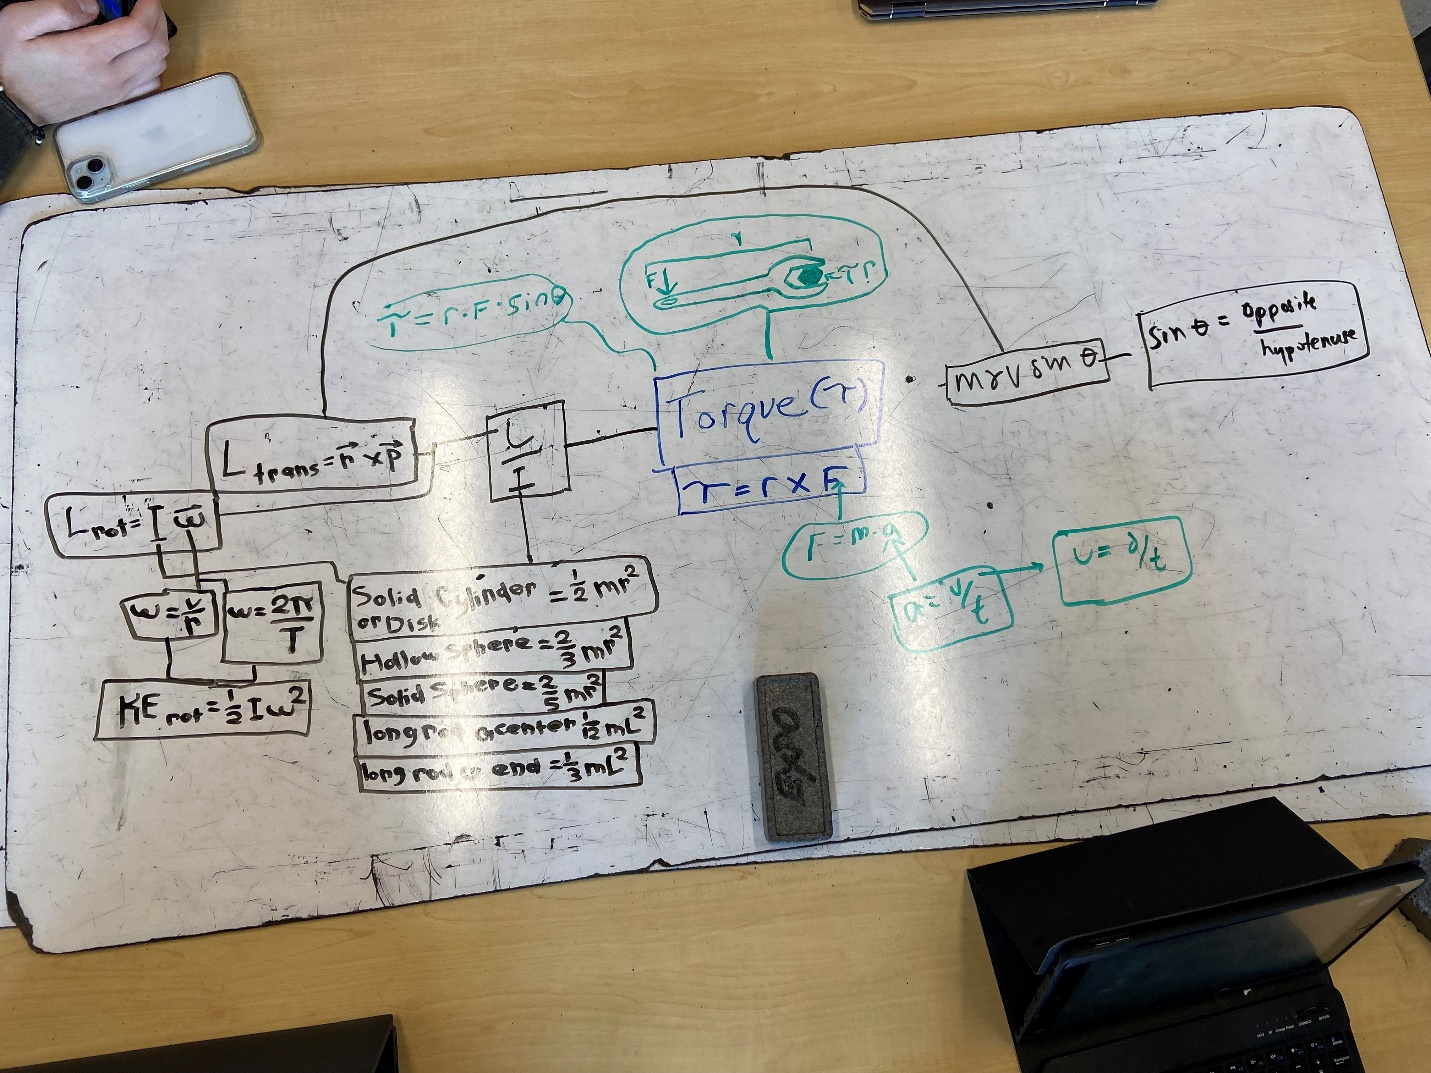 r
F
τ r
τ = r・F・sinθ
Torque (τ)
τ = r × F
mrv sin θ
sin θ = opposite
hypotenuse
L
I
L trans = r⃗ × p⃗
L rot = I ω⃗
ω = v/r
ω = 2π/T
KE rot = 1/2 I ω²
Solid Cylinder = 1/2 mr²
or Disk
Hollow Sphere = 2/3 mr²
Solid Sphere = 2/5 mr²
long rod @center 1/12 mL²
long rod @ end = 1/3 mL²
F = m・a
a = v/t